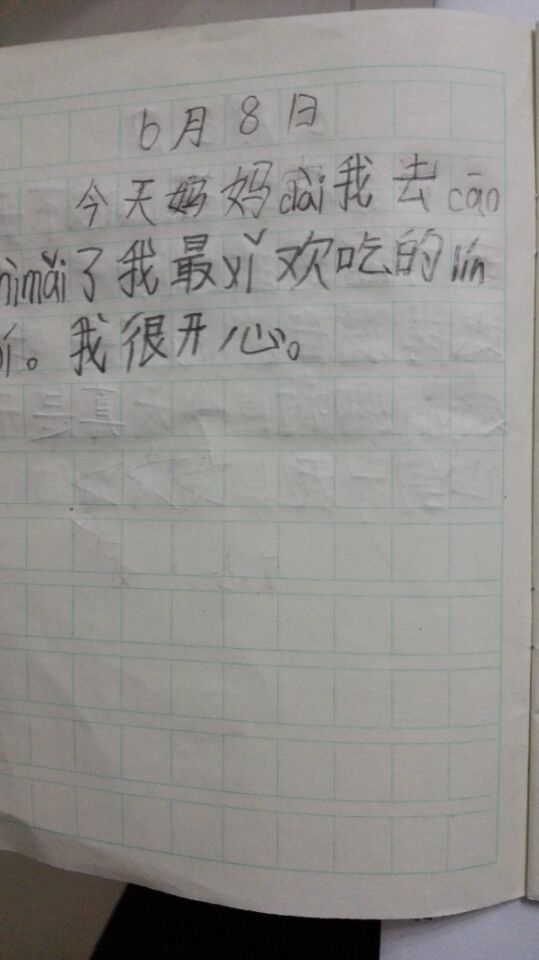 6月8日
今天妈妈dài我去cāo
hìmǎi了我最xǐ欢吃的lín
。我很开心。